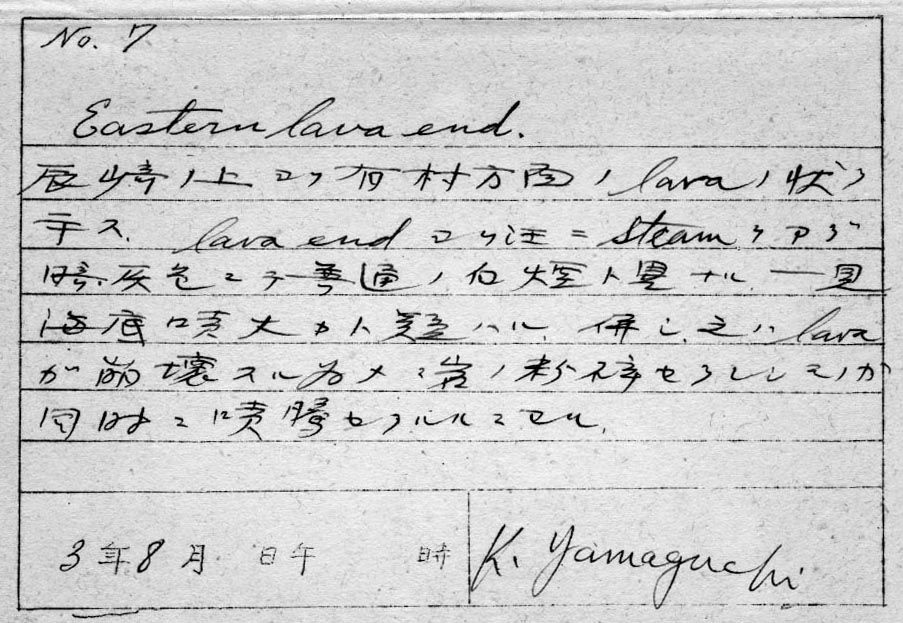 No. 7
Eastern lava end.
辰崎ノ上ヨリ有村方面ノ lava ノ状ヲ
示ス. lava end ヨリ steam ヲアゲ
暗灰色ニテ普通ノ白煙ト異ナル. 一見
海底噴火カト疑ハル. 併し之ハ lava
が崩壊スル為メニ岩ノ粉碎セラレシモノが
同時ニ噴騰セラルルニヨル.
3年8月 日午 時
K. Yamaguchi